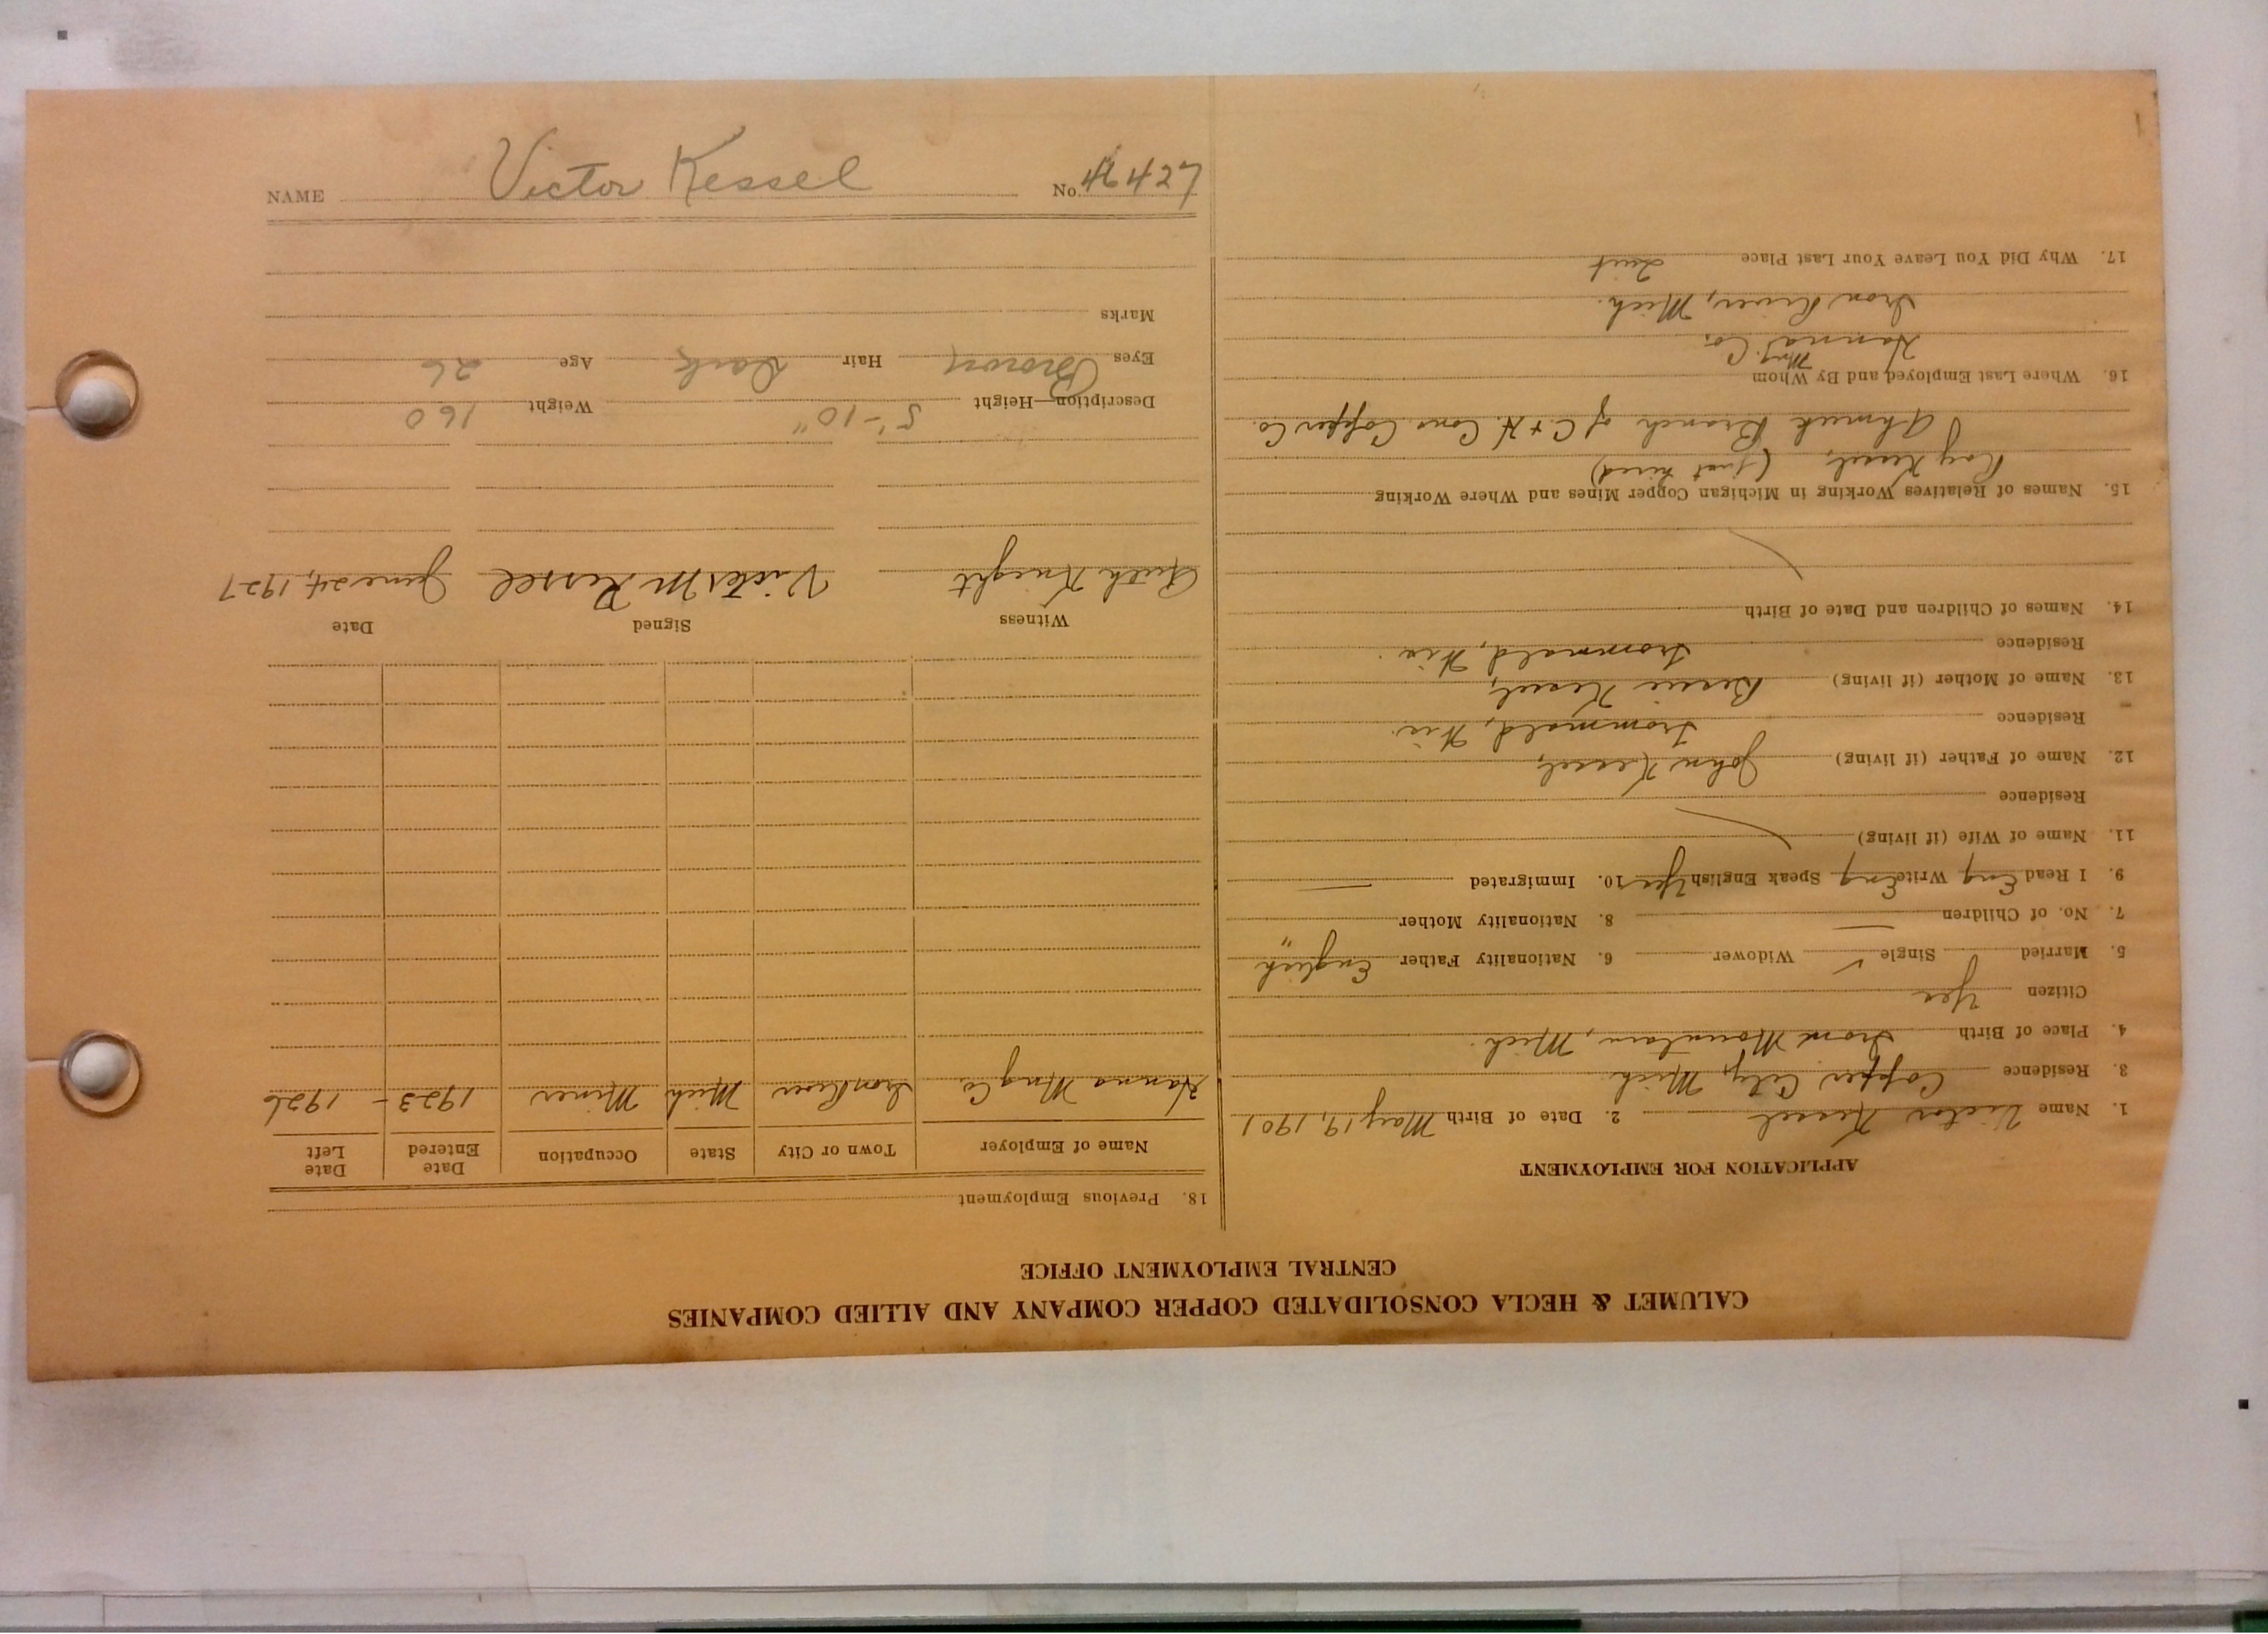 NAME Victor Kessel No. 46427
CALUMET & HECLA CONSOLIDATED COPPER COMPANY AND ALLIED COMPANIES
CENTRAL EMPLOYMENT OFFICE
APPLICATION FOR EMPLOYMENT
1. Name Victor Kessel 2. Date of Birth May 19, 1901
3. Residence Copper City, Mich.
4. Place of Birth Iron Mountain, Mich.
Citizen Yes
5. Married Single ✓ Widower 6. Nationality Father English
7. No. of Children — 8. Nationality Mother "
9. I Read Eng Write Eng Speak English Yes 10. Immigrated —
11. Name of Wife (if living)
Residence
12. Name of Father (if living) John Kessel,
Residence Ironwald, Wis.
13. Name of Mother (if living) Bessie Kessel,
Residence Ironwald, Wis.
14. Names of Children and Date of Birth
15. Names of Relatives Working in Michigan Copper Mines and Where Working
Ray Kessel, (just hired)
Ahmeek Branch of C + H. Cons. Copper Co.
16. Where Last Employed and By Whom
Hanna Mng. Co.
Iron River, Mich.
17. Why Did You Leave Your Last Place Quit
18. Previous Employment
Name of Employer Town or City State Occupation Date Entered Date Left
Hanna Mng Co. Iron River Mich Miner 1923 - 1926
Witness Signed Date
Ruth Knight Victor M Kessel June 24, 1927
Description—Height 5'-10" Weight 160
Eyes Brown Hair Dark Age 26
Marks